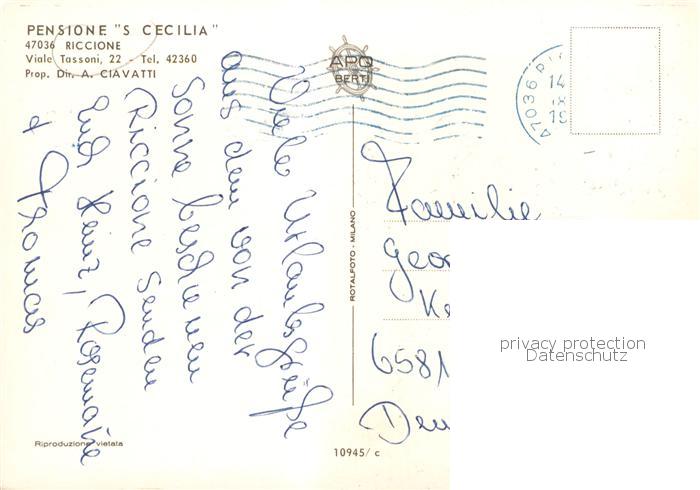 PENSIONE "S CECILIA"
47036 RICCIONE
Viale Tassoni, 22 - Tel. 42360
Prop. Dir. A. CIAVATTI
APO
BERTI
47036
14
Viele Urlaubsgrüße
aus dem von der
Sonne beschienen
Riccione senden
Heinz, Rosemarie
Thomas
ROTALFOTO - MILANO
Familie
Geo
Ke
6581
Deu
privacy protection
Datenschutz
Riproduzione vietata
10945/ c